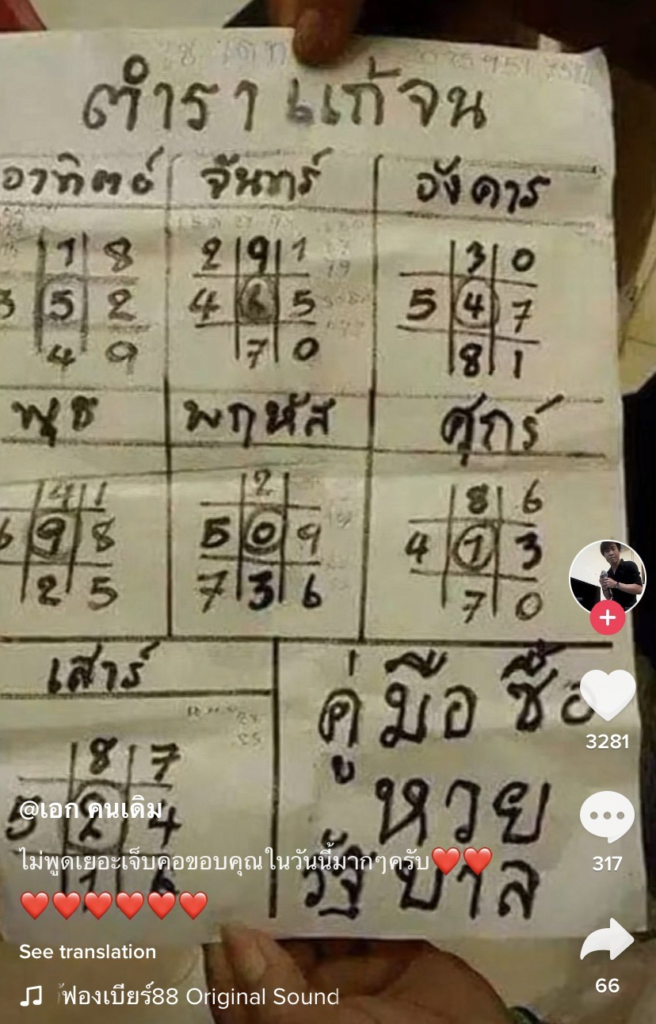 ตำราแก้จน
อาทิตย์ จันทร์ อังคาร
1 8
5 2
4 9
2 9 1
4 6 5
7 0
3 0
5 4 7
8 1
พุธ พฤหัส ศุกร์
4 1
6 9 8
2 5
2
5 0 9
7 3 6
8 6
4 1 3
7 0
เสาร์
8 7
5 2 4
คู่มือซื้อ
หวย
รัฐบาล
@เอก คนเดิม
ไม่พูดเยอะเจ็บคอขอบคุณในวันนี้มากๆครับ❤️❤️
❤️❤️❤️❤️❤️❤️
See translation
ฟองเบียร์88 Original Sound
3281
317
66